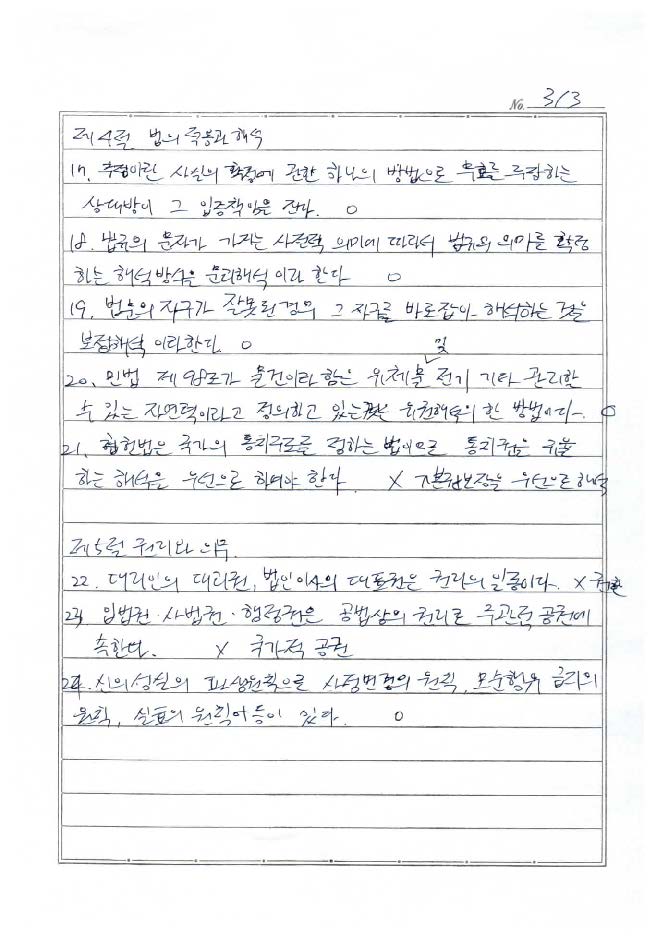 No. 3/3
제4절 법의 적용과 해석
17. 추정이란 사실의 확정에 관한 하나의 방법으로 무효를 주장하는
상대방이 그 입증책임을 진다. O
18. 법규의 문자가 가지는 사전적 의미에 따라서 법규의 의미를 확정
하는 해석방식을 문리해석이라 한다 O
19. 법문의 자구가 잘못된 경우 그 자구를 바로잡아 해석하는 것을
보정해석이라한다. O
및
20. 민법 제98조가 물건이라 함은 유체물 전기 기타 관리할
수 있는 자연력이라고 정의하고 있는 것은 유권해석의 한 방법이다. O
21. 헌법은 국가의 통치구조를 정하는 법이므로 통치권을
하는 해석은 우선으로 하여야 한다. X 기본권보장을 우선으로 해석
제5절 권리와 의무.
22. 대리인의 대리권, 법인이사의 대표권은 권리의 일종이다. X 권한
23. 입법권·사법권·행정권은 공법상의 권리로 주관적 공권에
속한다. X 국가적 공권
24. 신의성실의 파생원칙으로 사정변경의 원칙, 모순행위 금지의
원칙, 실효의 원칙 등이 있다. O